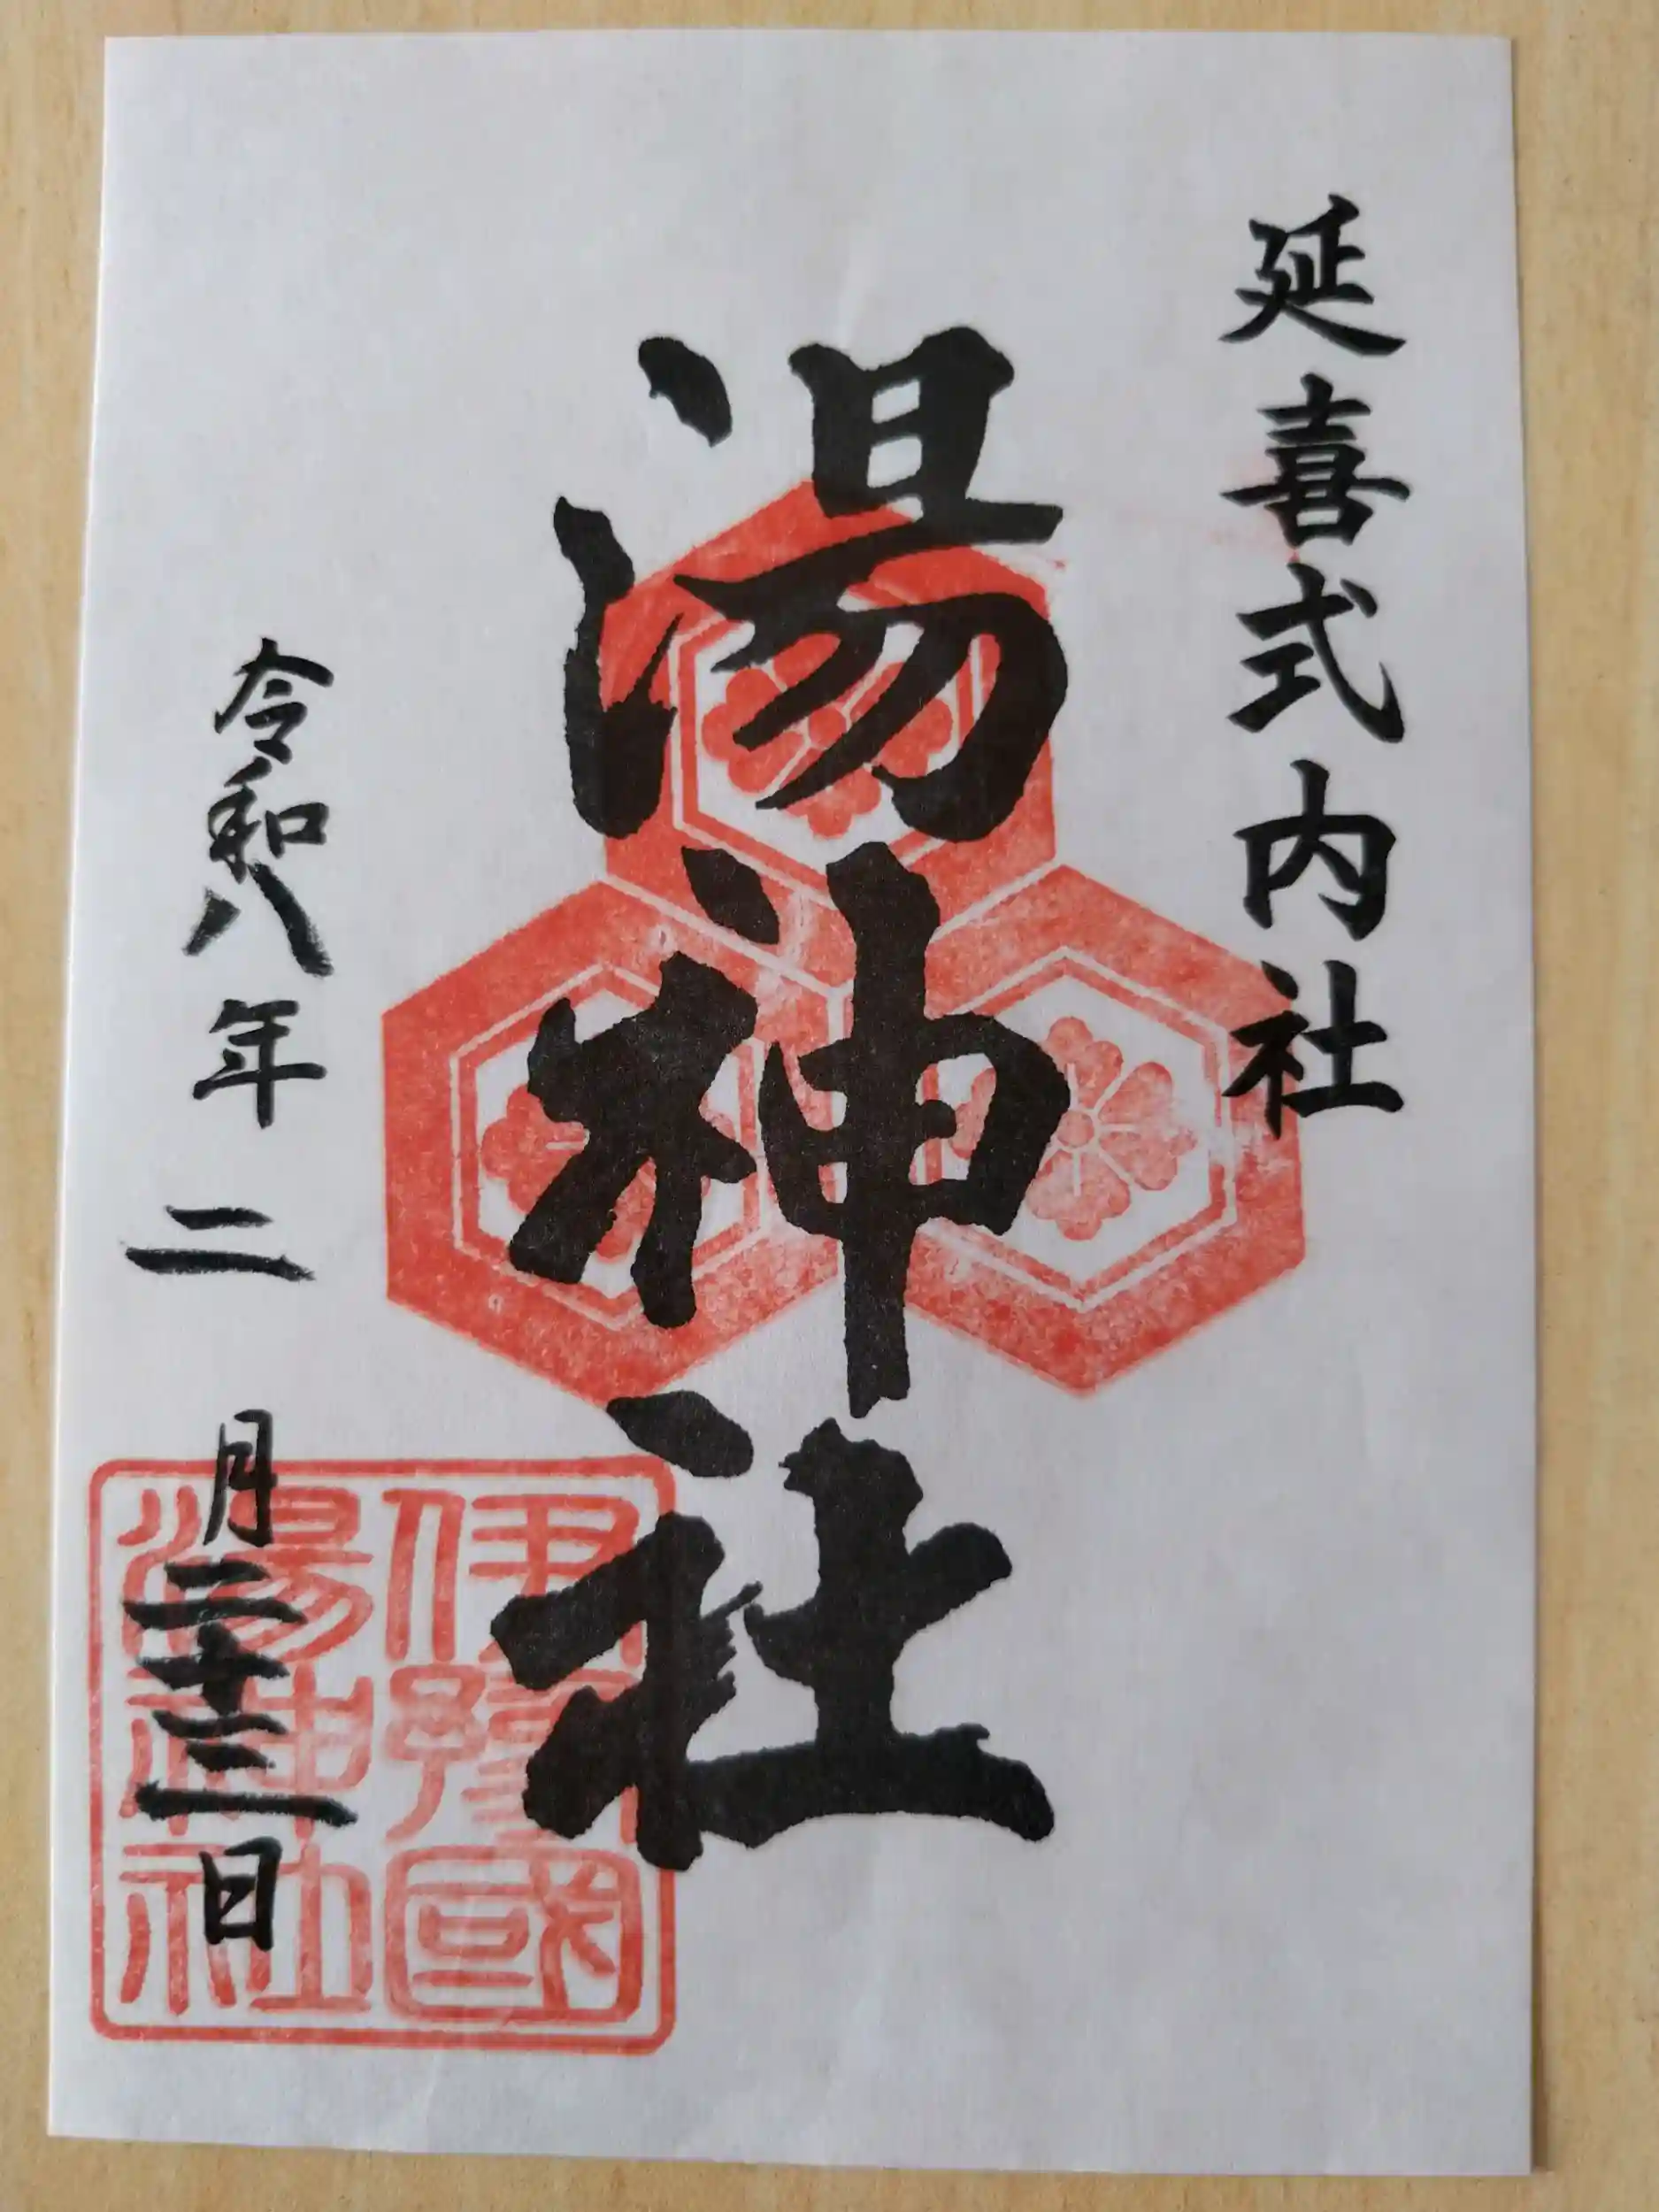 延喜式内社
湯神社
令和八年二月二十三日
伊豫國
湯神社